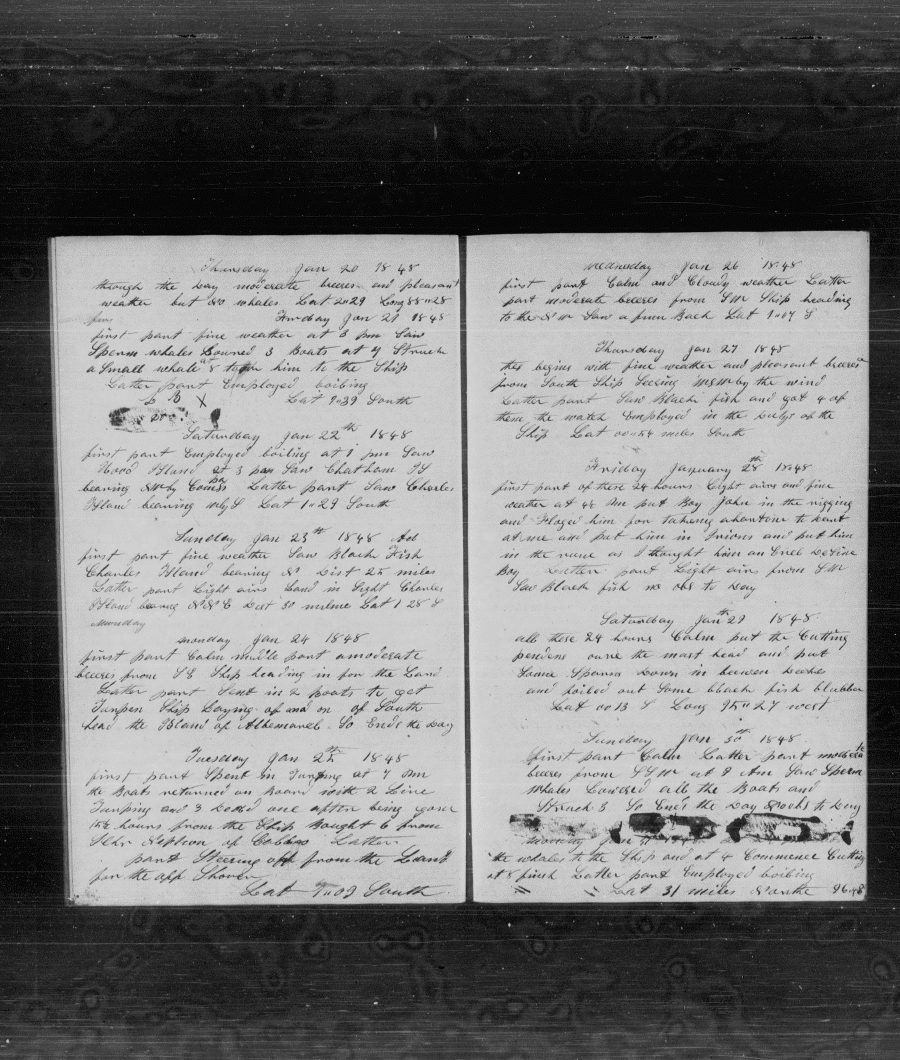 Thursday Jan 20 1848
through the Day moderate breeses and pleasant
weather but No whales Lat 2"29 Long 88"28
Friday Jan 21 1848
first part fine weather at 3 pm Saw
Sperm whales Lowred 3 Boats at 4 Struck
a Small whale at 8 him to the Ship
Latter part Employed boiling
Lat 1"39 South
25
Saturday Jan 22th 1848
first part Employed boiling at 1 pm Saw
Hood Island at 3 pm Saw Chatham Is
bearing NW by Compas Latter part Saw Charles
Island bearing Lat 1"29 South
Sunday Jan 23th 1848
first part fine weather Saw Black Fish
Charles Island bearing N Dist 25 miles
Latter part Light airs Land in Sight Charles
Island bearing NNE Dist 30 Lat 1 28 S
Munday
monday Jan 24 1848
first part Calm midle part a moderate
breeses from SE Ship heading in for the Land
Latter part Sent in 2 boats to get
Turpen Ship Laying of and on of South
head the Island of Albemarel So Ends the Day
Tuesday Jan 25th 1848
first part Spent in at 7 Am
the Boats returned on Board with 2 Live
Turping and 3 Dead one after being gone
hours from the Ship Bought 6 from
Schr of Latter
part Steering off from the Land
for the off Shore
Lat 1"03 South
Wednesday Jan 26 1848
first part Calm and Cloudy weather Latter
part moderate breeses from SW Ship heading
to the NW Saw a finn Back Lat 1"07 S
Thursday Jan 27 1848
this begins with fine weather and pleasant breeses
from South Ship Steering by the wind
Latter part Saw Black fish and got 4 of
them the watch Employed in the Dutys of the
Ship Lat 00"54 miles South
Friday January 28th 1848
first part of these 24 hours Light airs and fine
weather at Am put Boy John in the rigging
and Floged him for
at me and put him in Irions and put him
in the as I thought him an
Boy Latter part Light airs from SW
Saw Black fish no obs to Day
Saturday Jan 29th 1848
all these 24 hours Calm put the Cutting
pendens the mast head and put
Some Sparrs Down in between Decks
and boiled out Some black fish blubber
Lat 00 13 S Long 95"27 west
Sunday Jan 30th 1848
first part Calm Latter part moderate
breeses from SSW at 9 Am Saw Sperm
Whales Lowered all the Boats and
Struck 3 So Ends the Day No obs to Day
monday Jan 31 184
the whales to the Ship and at 4 Commence Cutting
at 8 finish Latter part Employed boiling
" " Lat 31 miles North 96"